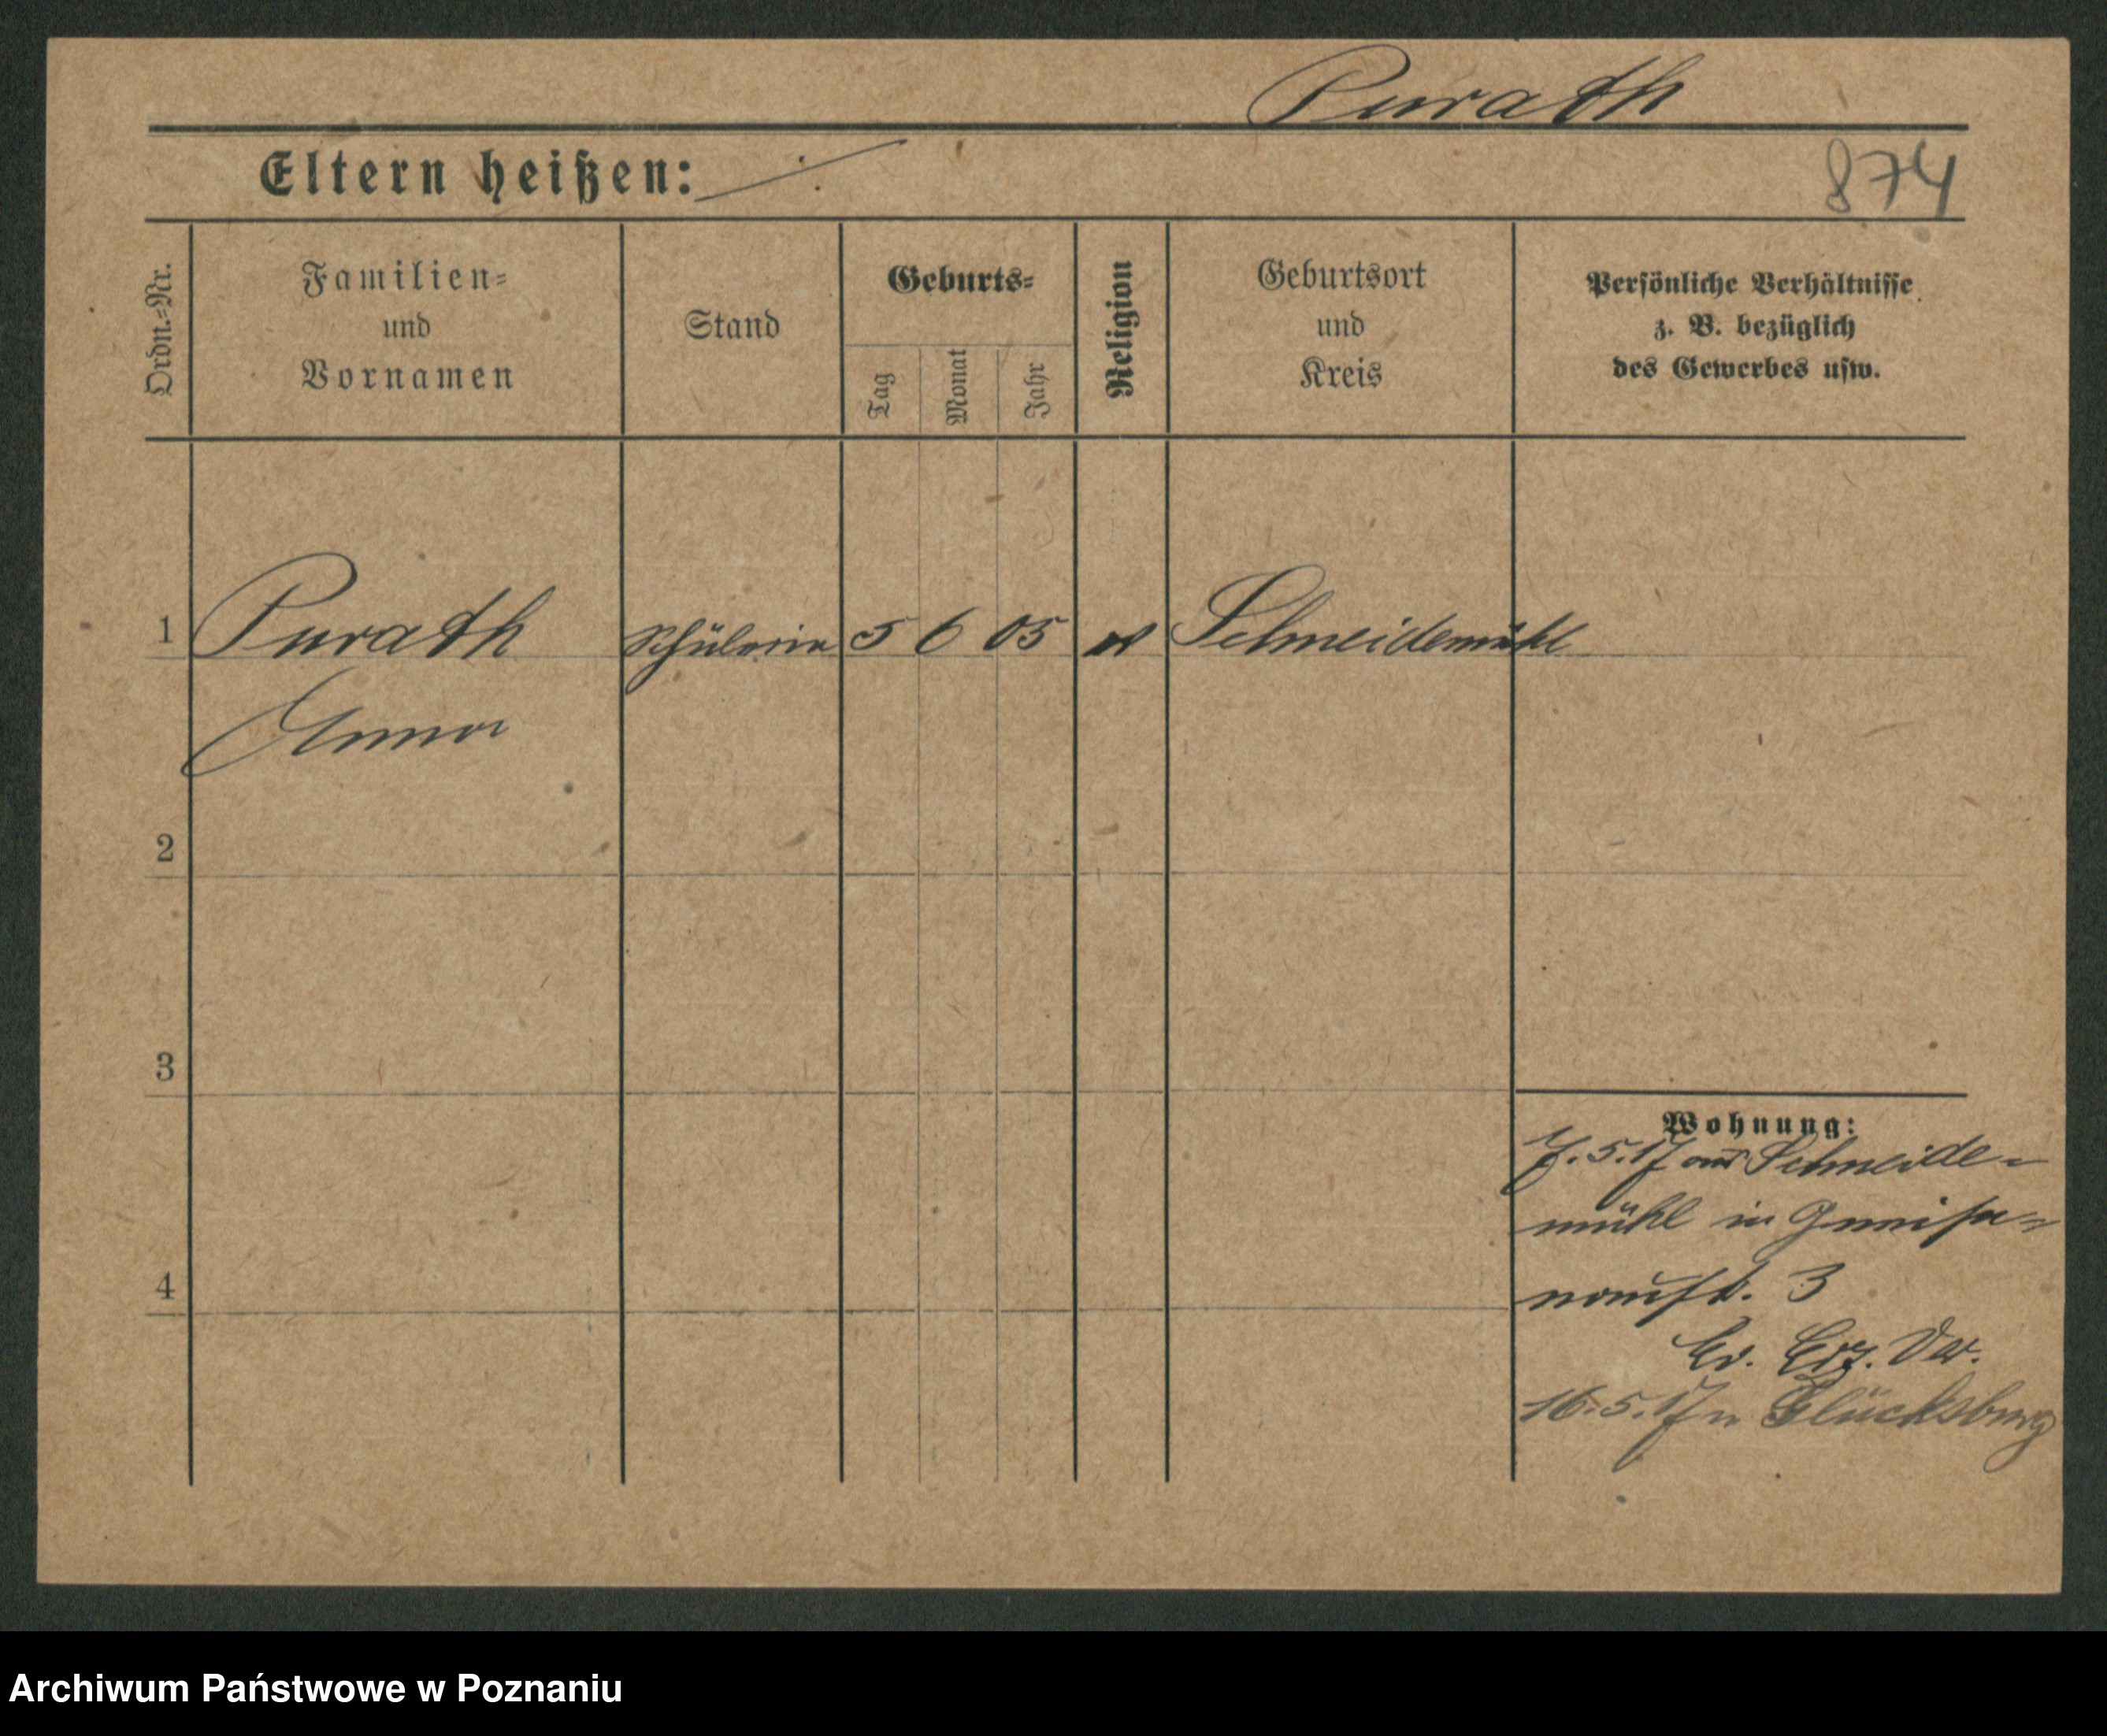 Purath
Eltern heißen: ./.
874
Ordn.-Nr.
Familien-
und
Vornamen
Stand
Geburts-
Tag
Monat
Jahr
Religion
Geburtsort
und
Kreis
Persönliche Verhältnisse
z. B. bezüglich
des Gewerbes usw.
1 Purath Schülerin 5 6 05 ev Schneidemühl
Anna
2
3
4
Wohnung:
7.5.17 aus Schneide-
mühl in Gneise-
naustr. 3
Ev. Erz. Ver.
16.5.17 n Glücksburg
Archiwum Państwowe w Poznaniu